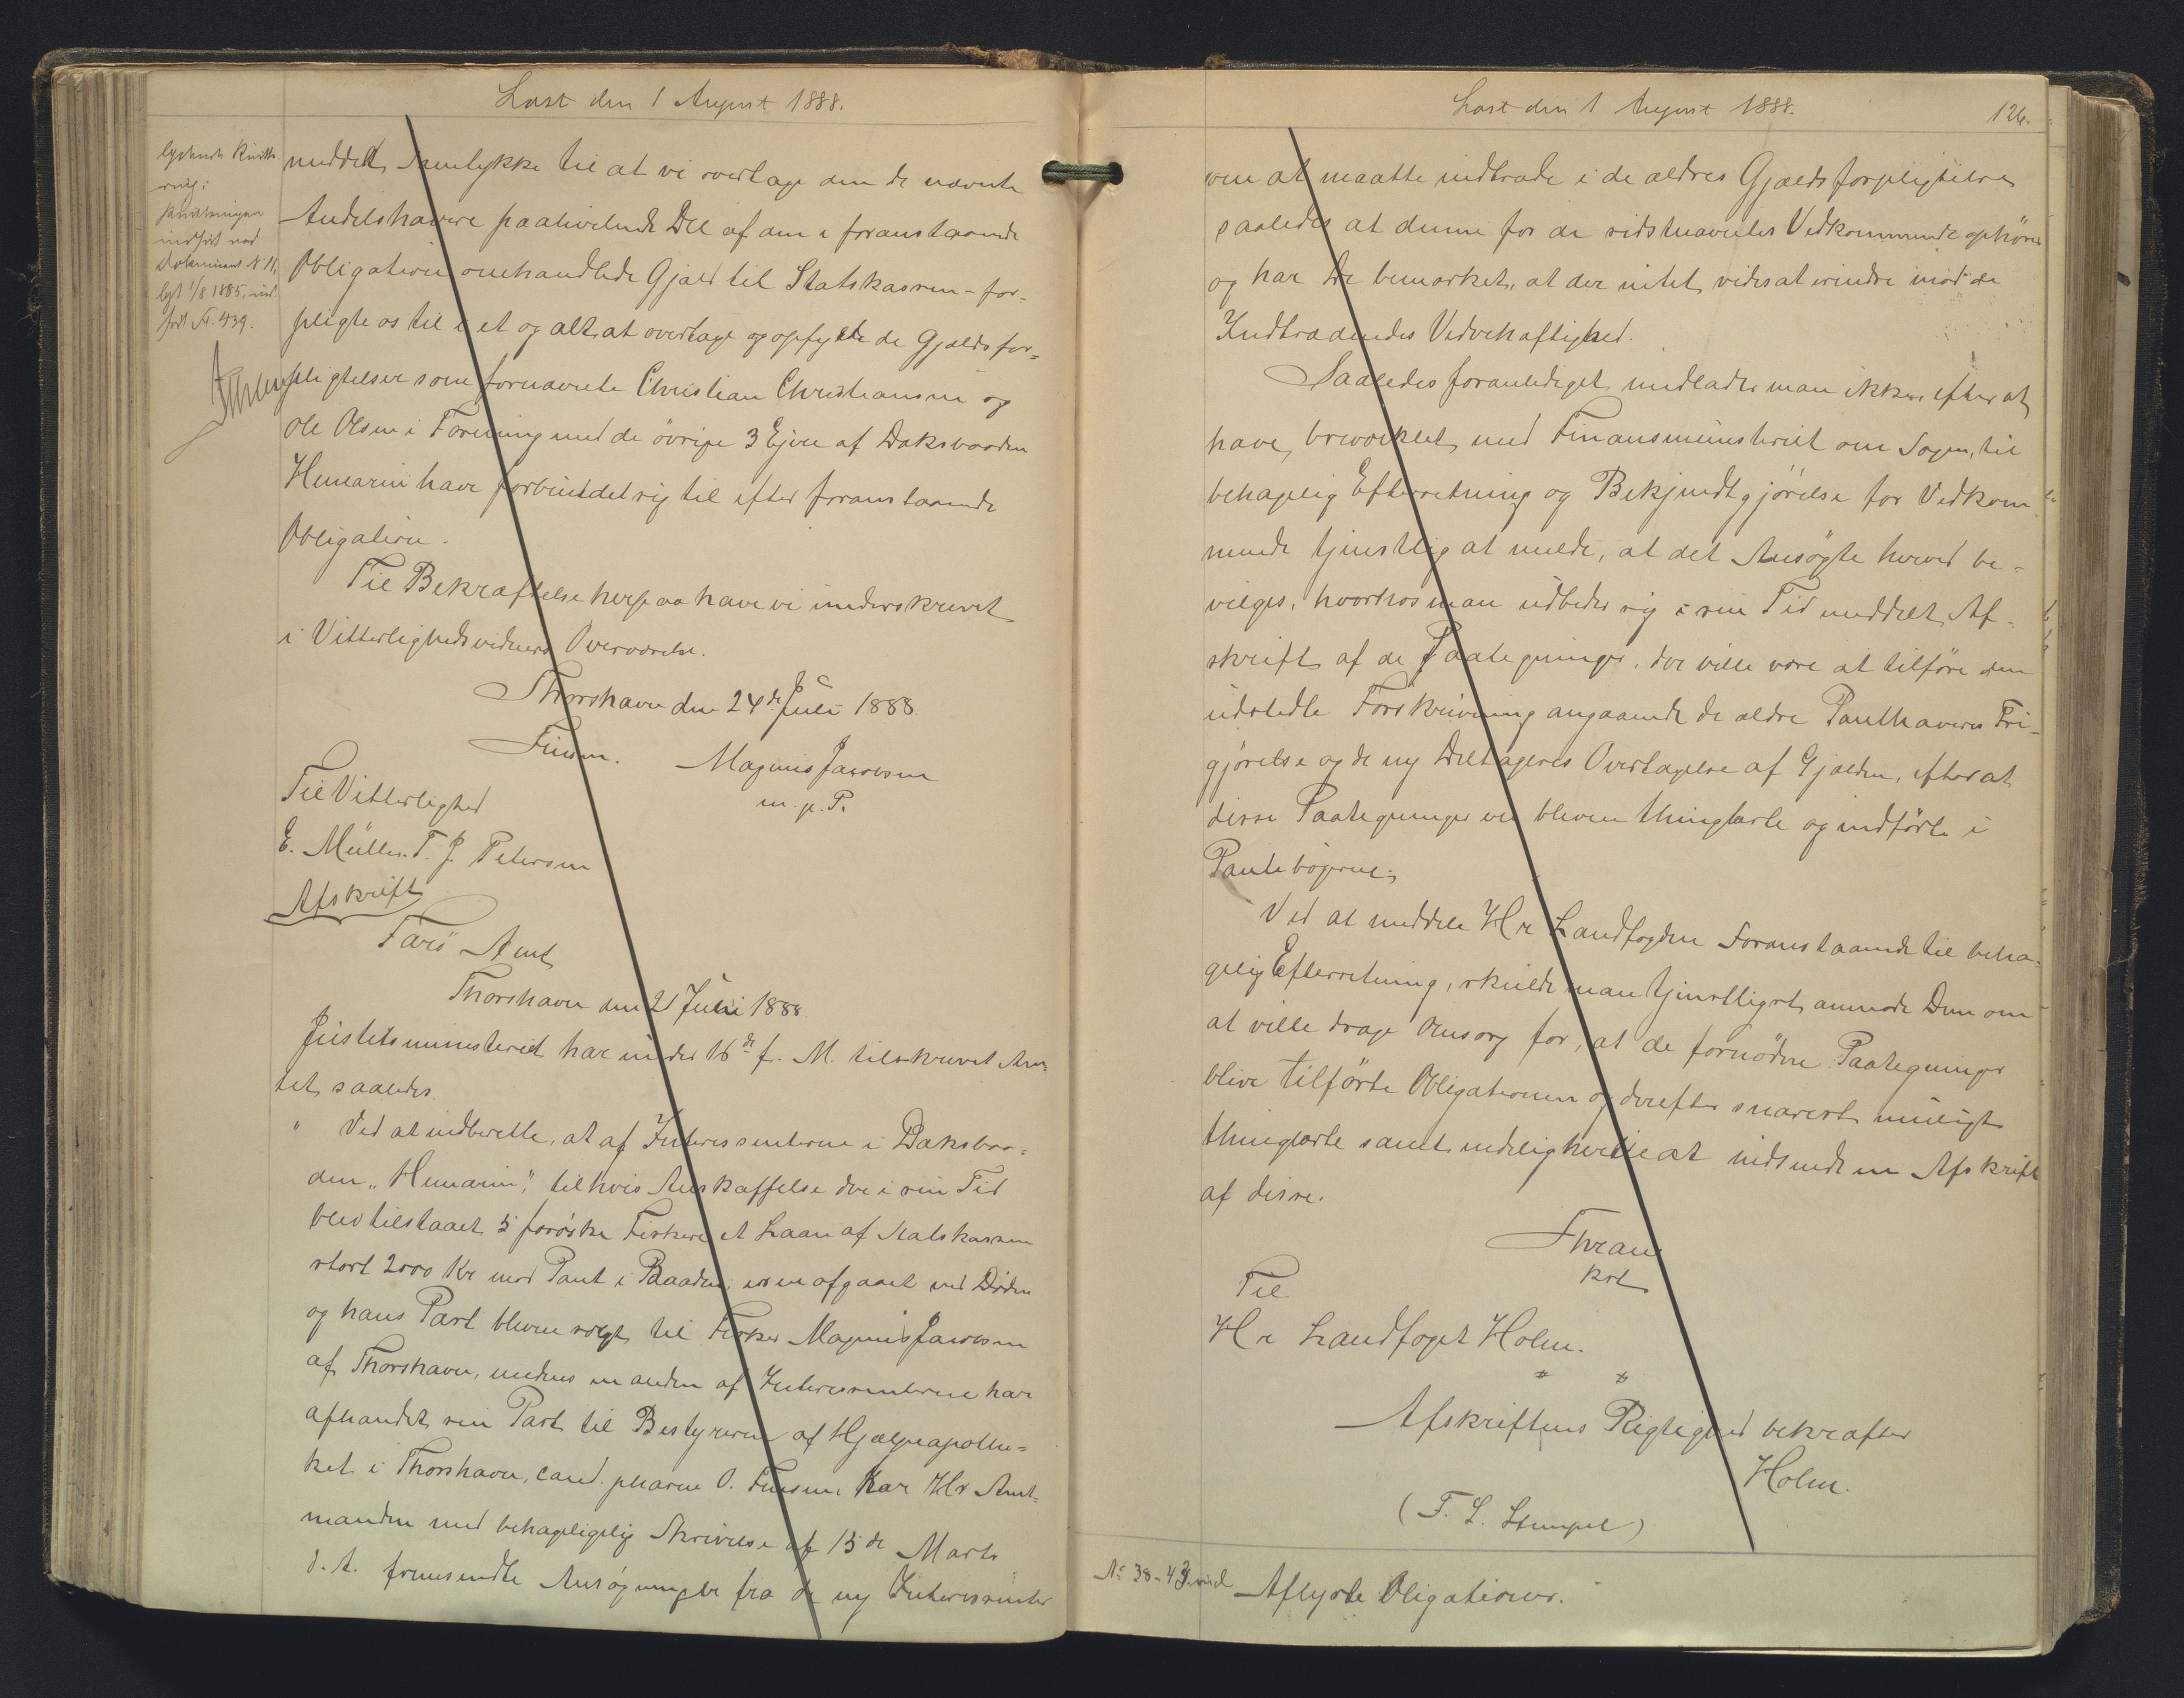 Læst den 1 August 1888.
lydende Kvitte
ring:
Kvitteringen
indført ved
Dokument N 11,
lyst 1/8 1885, ind
ført N. 439.
meddelt Samtykke til at vi overtage den de nævnte
Andelshavere paahvilende Del af den i foranstaaende
Obligation omhandlede Gjæld til Statskassen - for-
pligte os til i et og alt at overtage og opfylde de Gjældsfor-
pligtelser som fornævnte Christian Christiansen og
Ole Olsen i Forening med de övrige 3 Ejere af Daksbaaden
Henarin have forbundet sig til efter foranstaaende
Obligation.
Til Bekræftelse herpaa have vi underskrevet
i Vitterlighedsvidners Overværelse.
Thorshavn den 24de Juli 1888.
Finsen. Magnus Jacobsen
m. p. P.
Til Vitterlighed
E. Müller. T. J. Petersen
Afskrift
Færö Amt
Thorshavn den 21 Juli 1888.
Justitsministeriet har under 16de f. M. tilskrevet Am-
tet saaledes.
" Ved at indberette, at af Interessenterne i Daksbaa-
den "Henarin", til hvis Anskaffelse der i sin Tid
blev tilstaaet 5 færöske Fiskere et Laan af Statskassen
stort 2000 Kr mod Pant i Baaden, er en afgaaet ved Döden
og hans Part bleven solgt til Fisker Magnus Jacobsen
af Thorshavn, medens en anden af Interessenterne har
afhændet sin Part til Bestyreren af Hjælpeapothe-
ket i Thorshavn, cand. pharm O. Finsen, har Hr Amt-
manden med behageligelig Skrivelse af 15de Marts
d. A. fremsendte Ansøgninger fra de ny Interessenter
Læst den 1 August 1888.
126.
om at maatte indtræde i de ældres Gjældsforpligtelser
saaledes at denne for de sidstnævntes Vedkommende ophörer
og har De bemærket, at der intet vides at erindre mod de
Indtrædendes Vederhæftighed.
Saaledes foranlediget undlader man ikke, efter at
have brevvexlet med Finansministeriet om Sagen, til
behagelig Efterretning og Bekjendtgjörelse for Vedkom-
mende tjenstlig at melde, at det Ansögte herved be-
vilges, hvorhos man udbeder sig i sin Tid meddelt Af-
skrift af de Paategninger, der ville være at tilföre den
udstedte Forskrivning angaaende de ældre Panthaveres Fri-
gjörelse og de ny Deltageres Overtagelse af Gjælden, efter at
disse Paategninger ere blevne thinglæste og indförte i
Pantebögerne.
Ved at meddele Hr Landfogden Foranstaaende til beha-
gelig Efterretning, skulde man tjenstligst anmode Dem om
at ville drage Omsorg for, at de fornödne Paategninger
blive tilförte Obligationen og derefter snarest muligt
thinglæste samt endelig hertil at indsende en Afskrift
af disse.
kst
Til
Hr Landfoged Holm.
Afskriftens Rigtighed bekræfter
Holm.
(F. L. Stempel)
No 38-43 incl
Aflyste Obligationer.